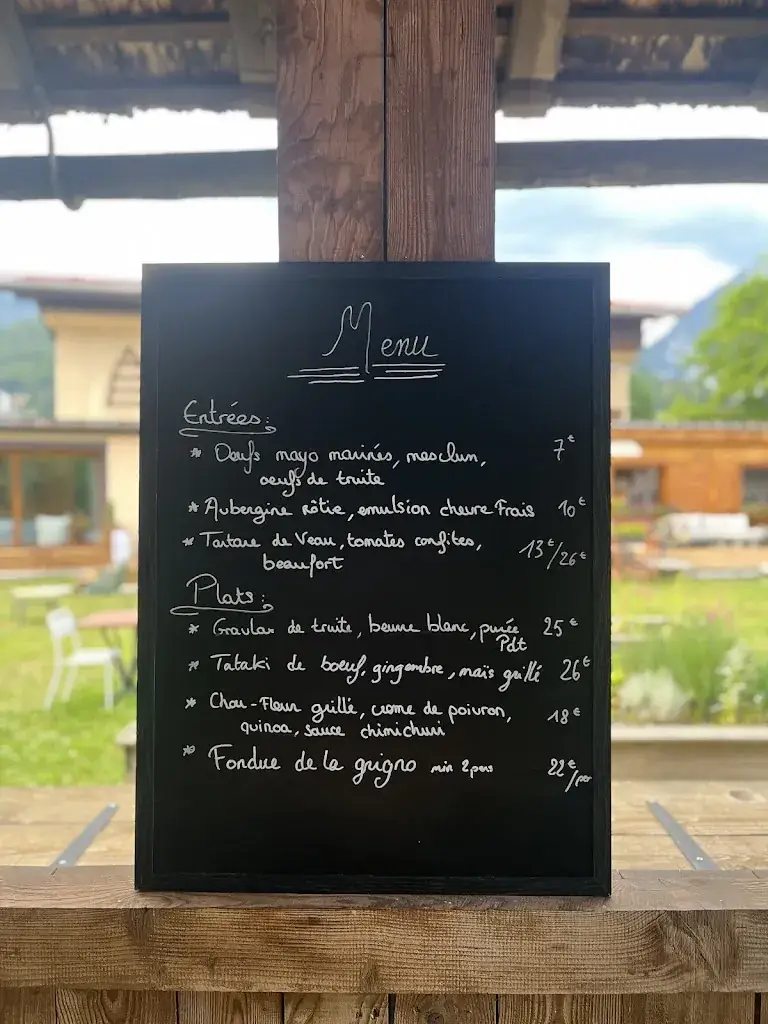 Menu
Entrées:
* Oeufs mayo marinés, mesclun, 7€
oeufs de truite
* Aubergine rôtie, emulsion chevre Frais 10€
* Tartare de Veau, tomates confites, 13€/26€
beaufort
Plats:
* Gravlax de truite, beurre blanc, purée 25€
Pdt
* Tataki de boeuf, gingembre, maïs grillé 26€
* Chou-Fleur grillé, creme de poivron, 18€
quinoa, sauce chimichuri
* Fondue de la grigno min 2 pers 22€/per